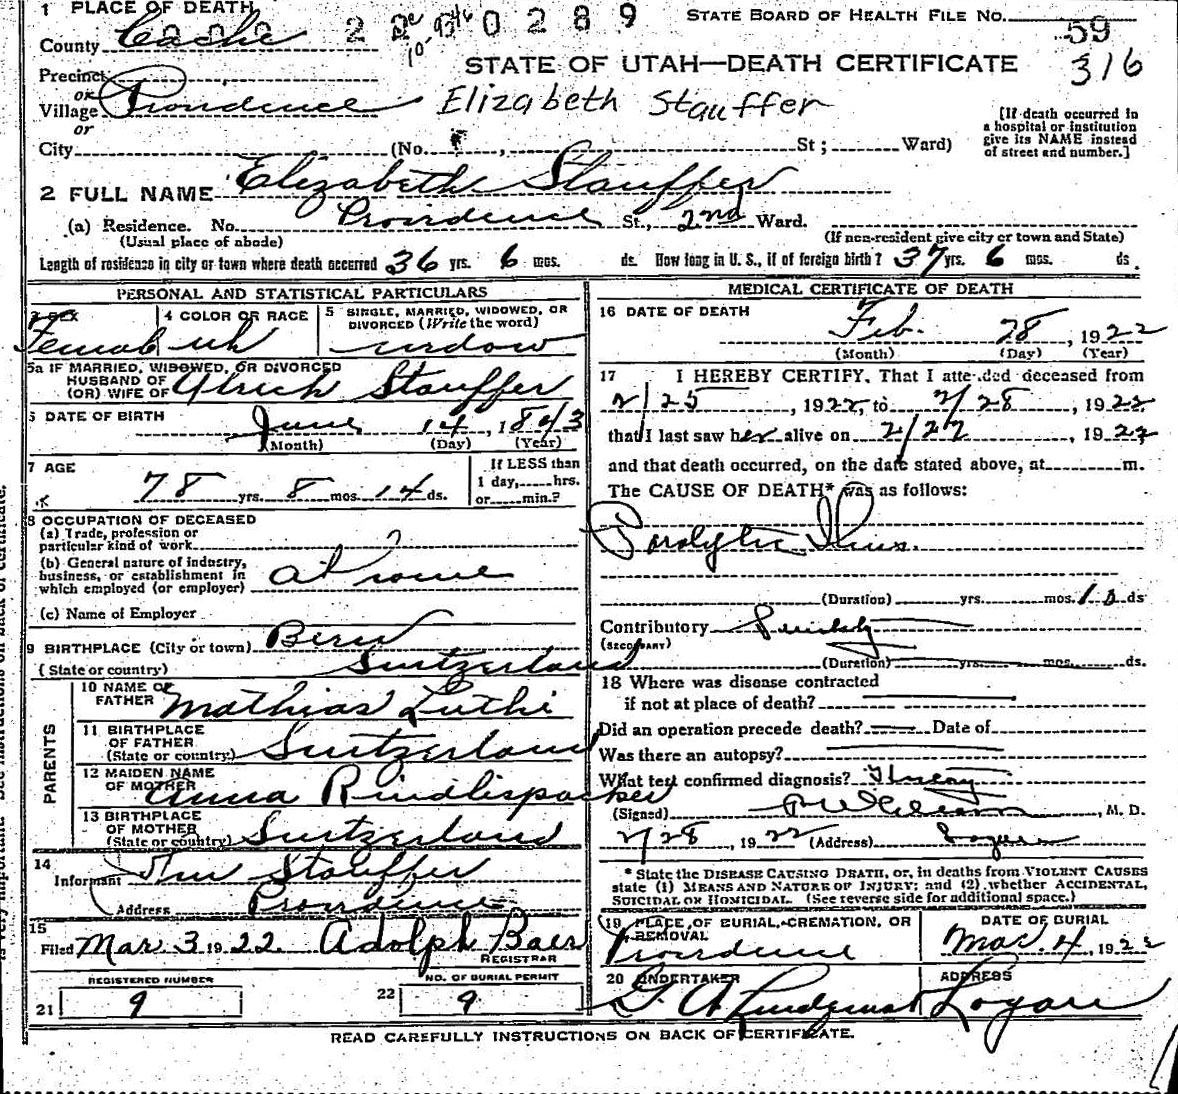 1 PLACE OF DEATH
STATE BOARD OF HEALTH FILE No. 59
County Cache
2 0289
316
STATE OF UTAH—DEATH CERTIFICATE
Precinct
or
Village Providence
Elizabeth Stauffer
or
[If death occurred in
a hospital or institution
give its NAME instead
of street and number.]
City (No. , St ; Ward)
2 FULL NAME Elizabeth Stauffer
(a) Residence. No. Providence St., 2nd Ward.
(Usual place of abode) (If non-resident give city or town and State)
Length of residence in city or town where death occurred 36 yrs. 6 mos. ds. How long in U. S., if of foreign birth? 37 yrs. 6 mos. ds.
PERSONAL AND STATISTICAL PARTICULARS
3 SEX
Female
4 COLOR OR RACE
wh
5 SINGLE, MARRIED, WIDOWED, OR
DIVORCED (Write the word)
widow
5a IF MARRIED, WIDOWED, OR DIVORCED
HUSBAND OF
(OR) WIFE OF Ulrich Stauffer
6 DATE OF BIRTH
June 14, 1843
(Month) (Day) (Year)
7 AGE
78 yrs. 8 mos. 14 ds.
If LESS than
1 day, hrs.
or min.?
8 OCCUPATION OF DECEASED
(a) Trade, profession or
particular kind of work
(b) General nature of industry,
business, or establishment in
which employed (or employer)
at home
(c) Name of Employer
9 BIRTHPLACE (City or town) Bern
(State or country) Switzerland
PARENTS
10 NAME OF
FATHER Mathias Luthi
11 BIRTHPLACE
OF FATHER
(State or country) Switzerland
12 MAIDEN NAME
OF MOTHER Anna Rindlispacher
13 BIRTHPLACE
OF MOTHER
(State or country) Switzerland
14
Informant Stauffer
Address Providence
15
Filed Mar. 3 1922. Adolph Baer
REGISTRAR
REGISTERED NUMBER
21 9
NO. OF BURIAL PERMIT
22 9
MEDICAL CERTIFICATE OF DEATH
16 DATE OF DEATH
Feb. 28, 1922
(Month) (Day) (Year)
17 I HEREBY CERTIFY, That I attended deceased from
2/25, 1922, to 2/28, 1922
that I last saw her alive on 2/27, 1922
and that death occurred, on the date stated above, at m.
The CAUSE OF DEATH* was as follows:
Paralytic Ileus.
(Duration) yrs. mos. 10 ds
Contributory
(SECONDARY)
(Duration) yrs. mos. ds.
18 Where was disease contracted
if not at place of death?
Did an operation precede death? Date of
Was there an autopsy?
What test confirmed diagnosis?
(Signed) , M. D.
2/28, 1922 (Address) Logan
* State the DISEASE CAUSING DEATH, or, in deaths from VIOLENT CAUSES
state (1) MEANS AND NATURE OF INJURY; and (2) whether ACCIDENTAL,
SUICIDAL OR HOMICIDAL. (See reverse side for additional space.)
19 PLACE OF BURIAL, CREMATION, OR
REMOVAL
Providence
DATE OF BURIAL
Mar. 4, 1922
20 UNDERTAKER
G. A. Lindquist
ADDRESS
Logan
READ CAREFULLY INSTRUCTIONS ON BACK OF CERTIFICATE.